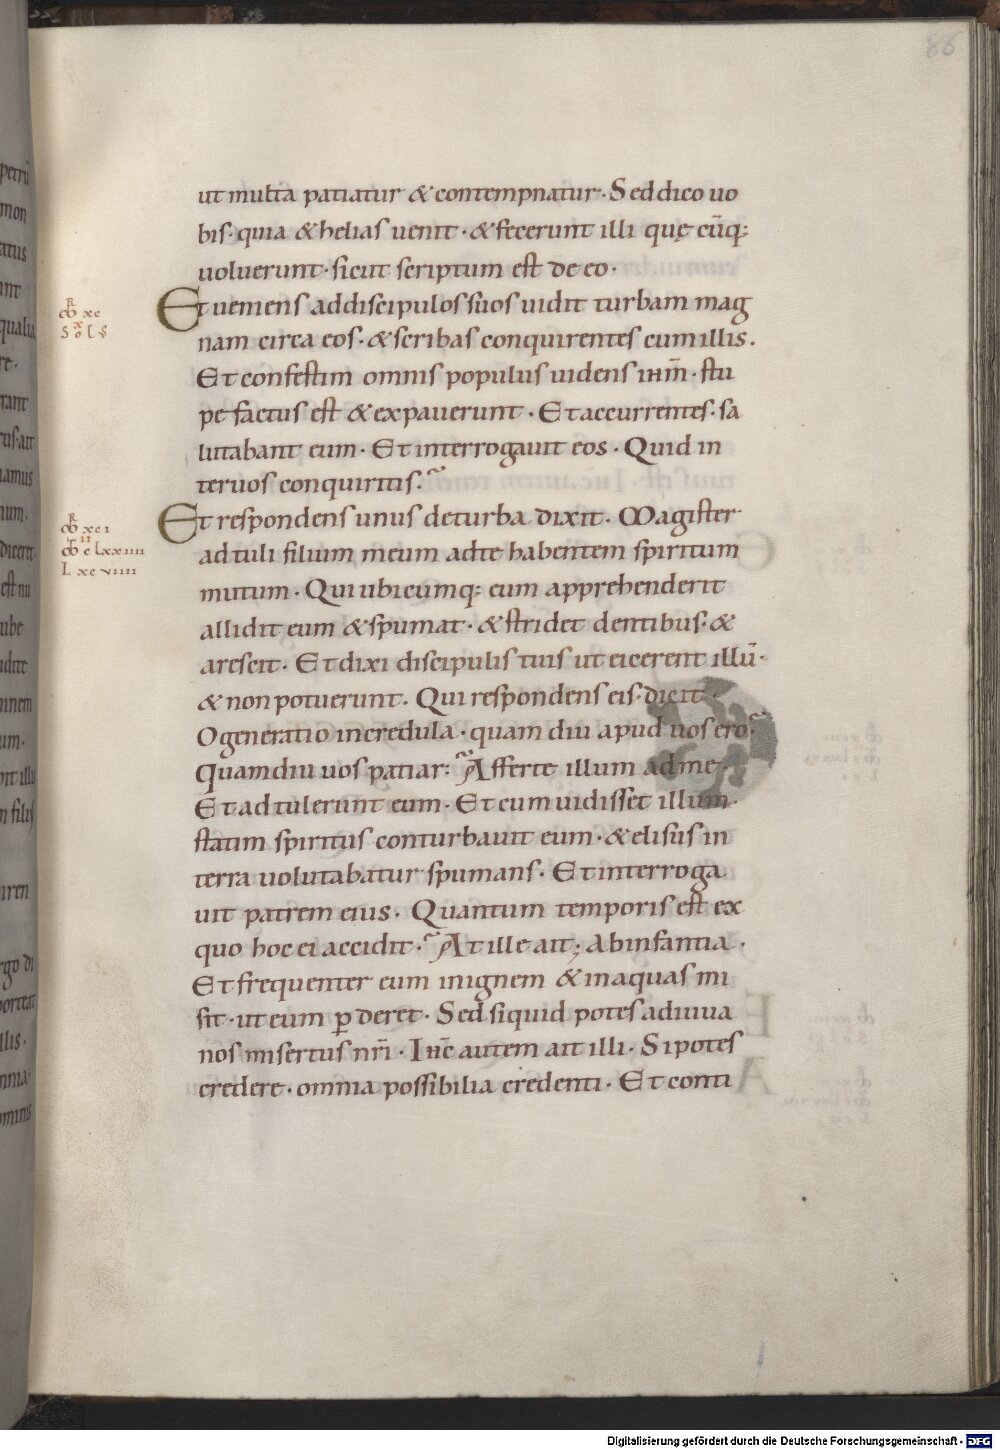 86
ut multa patiatur & contempnatur · Sed dico uo
bis · quia & helias uenit · & fecerunt illi quę cū̄q;
uoluerunt · sicut scriptum est de eo ·
Et ueniens ad discipulos suos uidit turbam mag
nam circa eos · & scribas conquirentes cum illis .
Et confestim omnis populus uidens ihm̄ · stu
pefactus est & expauerunt · Et accurrentes · sa
lutabant eum · Et interrogauit eos · Quid in
ter uos conquiritis ·
Et respondens unus de turba dixit · Magister
adtuli filium meum ad te habentem spiritum
mutum · Qui ubicumq; eum apprehenderit
allidit eum & spumat · & stridet dentibus · &
arescit · Et dixi discipulis tuis ut eicerent illū ·
& non potuerunt · Qui respondens eis · dicit ·
O generatio incredula · quam diu apud uos ero ·
Quamdiu uos patiar : Afferte illum ad me ·
Et adtulerunt eum · Et cum uidisset illum ·
statim spiritus conturbauit eum · & elisus in
terra uolutabatur spumans · Et interroga
uit patrem eius · Quantum temporis est ex
quo hoc ei accidit · At ille ait ; Ab infantia ·
Et frequenter eum in ignem & in aquas mi
sit · ut eum p̱deret · Sed si quid potes adiuua
nos misertus nr̄i · Ihc̄ autem ait illi · Si potes
credere · omnia possibilia credenti · Et conti
Digitalisierung gefördert durch die Deutsche Forschungsgemeinschaft - DFG